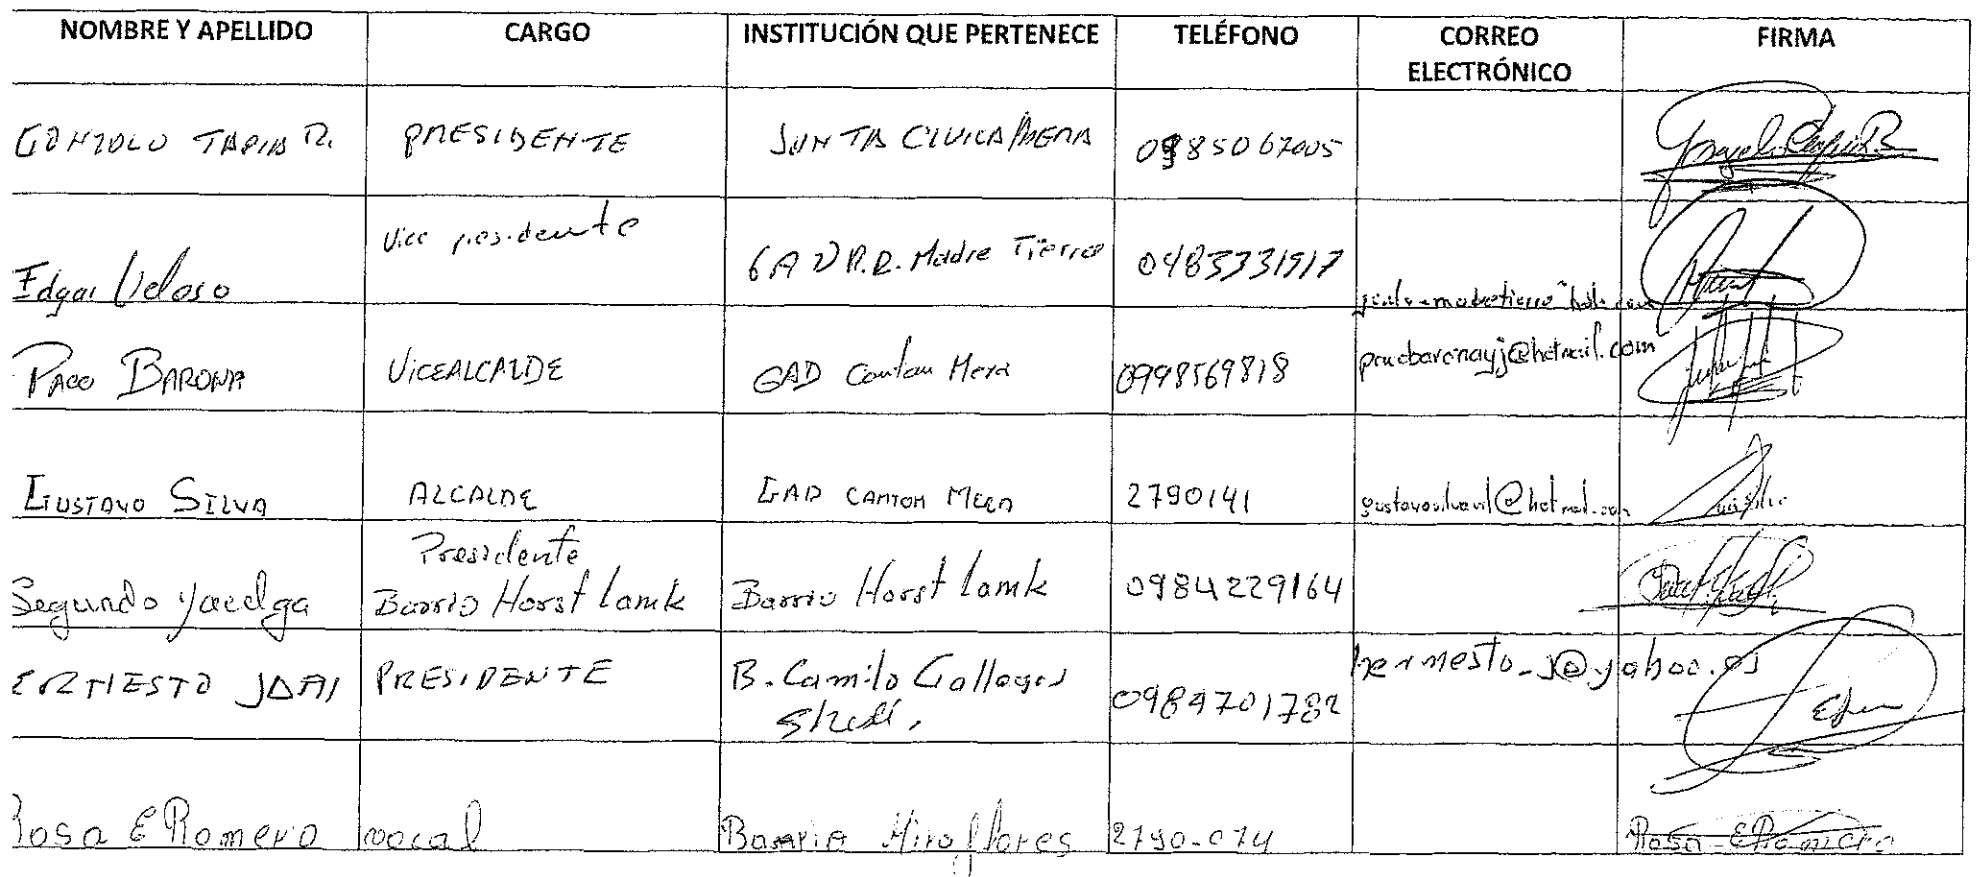 NOMBRE Y APELLIDO CARGO INSTITUCIÓN QUE PERTENECE TELÉFONO CORREO ELECTRÓNICO FIRMA
GONZOLO TAPIA R. PRESIDENTE JUNTA CIVICA MERA 0985067005
Edgar Veloso Vice presidente GAD P.R. Madre Tierra 0483331917
PACO BARONA VICEALCALDE GAD Canton Mera 0998569818
GUSTAVO SILVA ALCALDE GAD CANTON MERA 2790141
Presidente
Segundo Barrio Horst Lamk Barrio Horst Lamk 0984229164
ERNESTO PRESIDENTE B. Camilo Gallegos 0984701782 hermesto_j@yahoo.es
Rosa E Romero vocal Barrio Miraflores 2790-074 Rosa E Romero